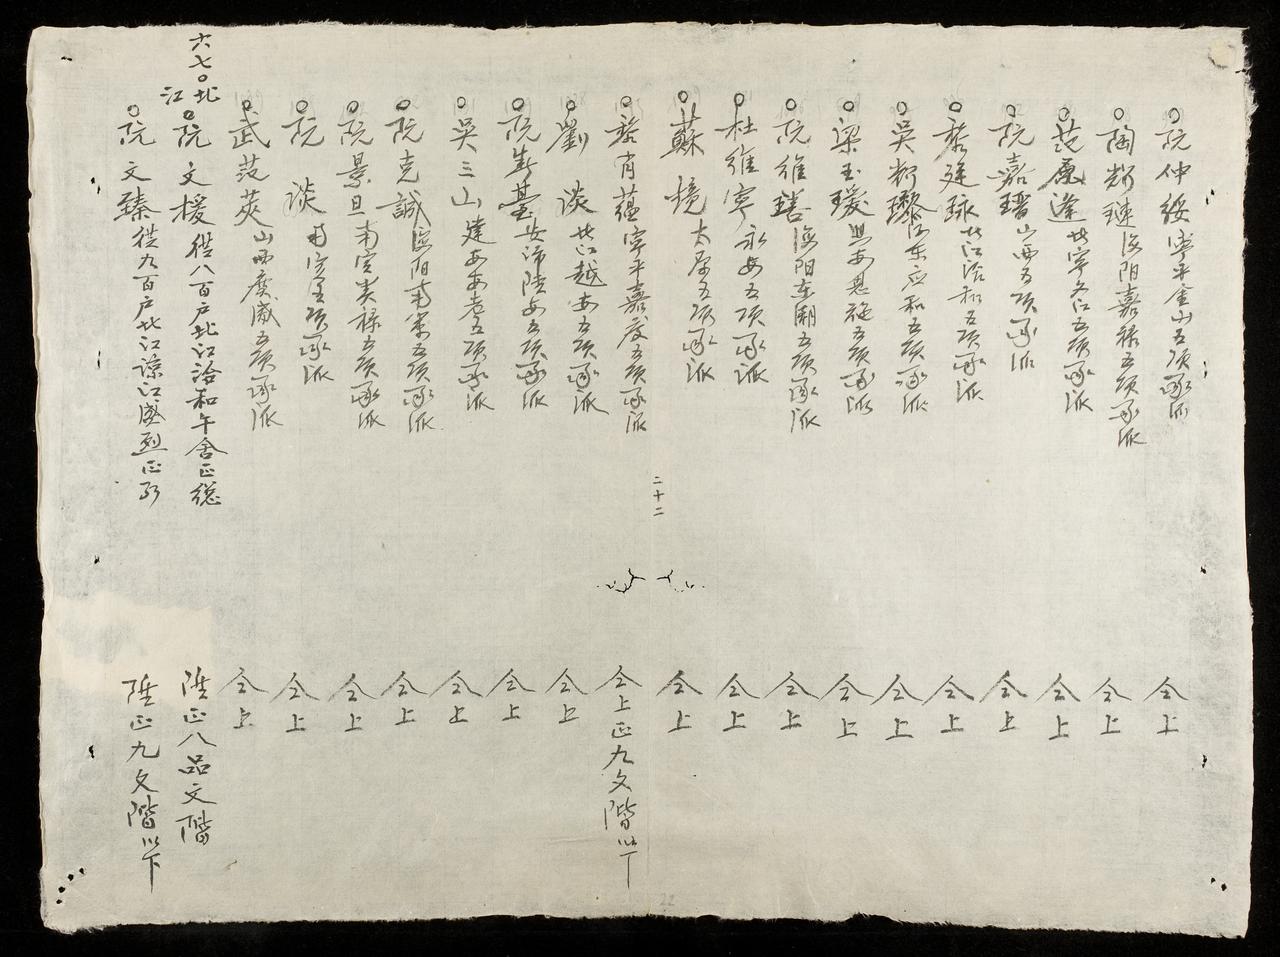 阮仲綏寧平金山五項承派 仝上
陶輝璉海阳嘉禄五項承派 仝上
范原逢北寧久江五項承派 仝上
阮嘉瑨山西五項承派 仝上
黎廷琭北江洽和五項承派 仝上
吳輝𤩪河东应和五項承派 仝上
梁玉瑗興安恩施五項承派 仝上
阮維瑨海阳东潮五項承派 仝上
杜維寧永安五項承派 仝上
蘇境太原五項承派 仝上
黎肯蘊寧平嘉度五項承派 仝上正九文階以下
劉談北江越安五項承派 仝上
阮臺安沛陸安五項承派 仝上
吳三山建安安老五項承派 仝上
阮克誠海阳南策五項承派 仝上
阮景旦南定美禄五項承派 仝上
阮談南定五項承派 仝上
武范英山西廣威五項承派 仝上
六七〇北江
阮文楥從八百戶北江洽和午舍正總 陞正八品文階
阮文臻從九百戶北江諒江盛烈正 陞正九文階以下
二十二
22